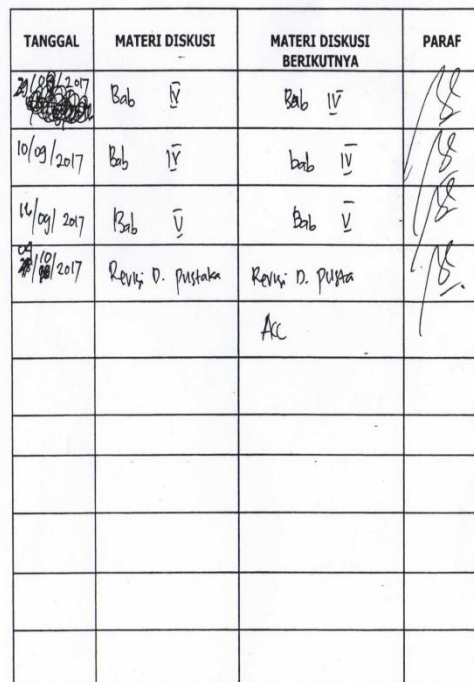 TANGGAL MATERI DISKUSI MATERI DISKUSI BERIKUTNYA PARAF
/2017 Bab IV Bab IV
10/09/2017 Bab IV bab IV
16/09/2017 Bab V Bab V
04/10/2017 Revisi D. pustaka Revisi D. pusta
Acc